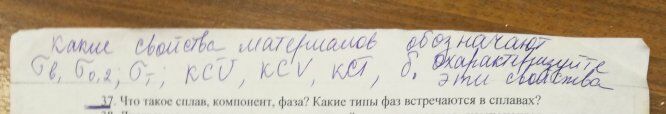 Какие свойства материалов обозначают
σв, σ0,2; σт; KCU, KCV, KCT, δ, охарактеризуйте
эти свойства
37. Что такое сплав, компонент, фаза? Какие типы фаз встречаются в сплавах?